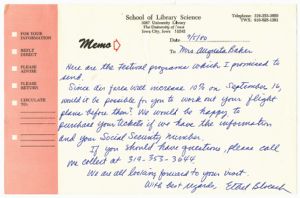 School of Library Science
3087 University Library
The University of Iowa
Iowa City, Iowa 52242
Telephone: 319-353-3644
TWX: 910-525-1391
FOR YOUR
INFORMATION
REPLY
DIRECT
PLEASE
ADVISE
PLEASE
RETURN
CIRCULATE
TO:
Memo
Date 9/5/80
To Mrs Augusta Baker
Here are the festival programs which I promised to
send.
Since air fares will increase 10% on September 16,
would it be possible for you to work out your flight
plans before then? We would be happy to
purchase your tickets if we have the information
and your Social Security Number.
If you should have questions, please call
me collect at 319-353-3644.
We are all looking forward to your visit.
With best regards, Ethel Bloesch